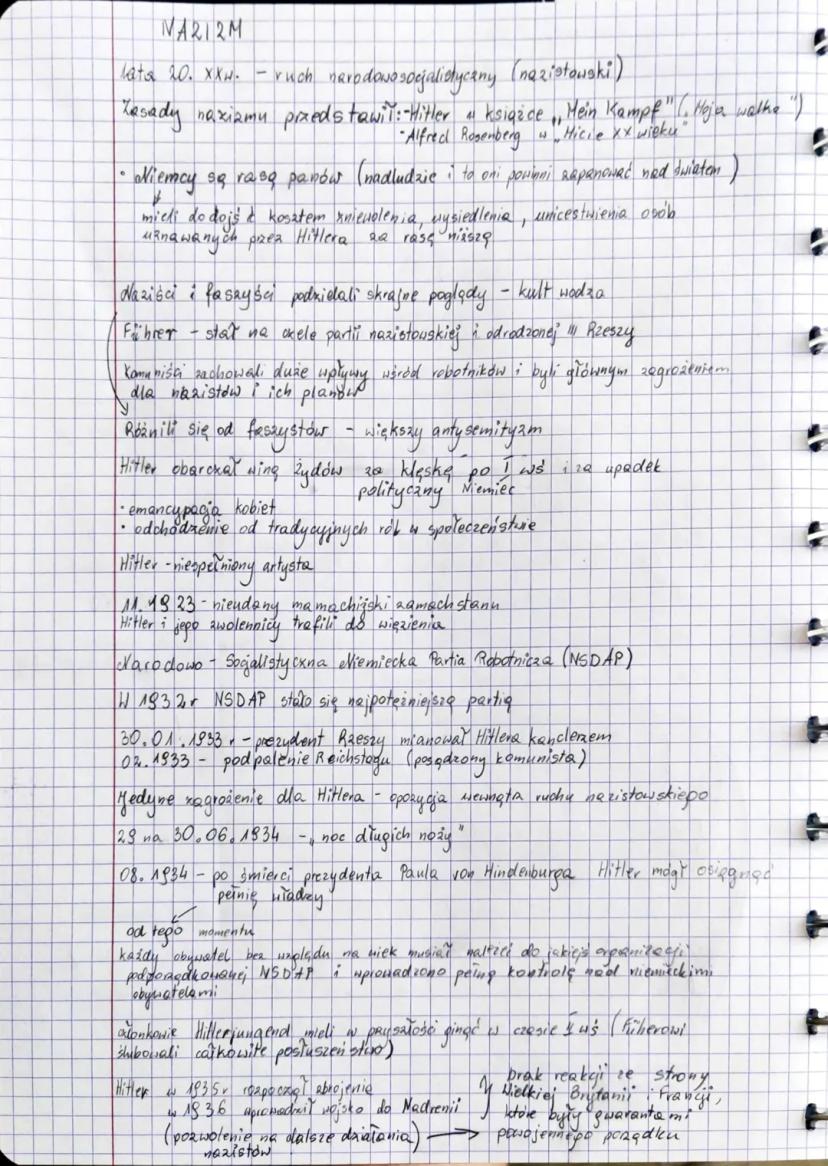 NAZIZM
Lata 20. XXw. - ruch narodowosocjalistyczny (nazistowski)
Zasady nazizmu przedstawił: - Hitler w książce „Mein Kampf" („Moja walka")
- Alfred Rosenberg w „Micie XX wieku"
• Niemcy są rasą panów (nadludzie i to oni powinni zapanować nad światem)
mieli do dojść kosztem zniewolenia, wysiedlenia, unicestwienia osób
uznawanych przez Hitlera za rasę niższą
Naziści i faszyści podzielali skrajne poglądy - kult wodza
Führer - stał na czele partii nazistowskiej i odrodzonej III Rzeszy
Komuniści zachowali duże wpływy wśród robotników i byli głównym zagrożeniem
dla nazistów i ich planów
Różnili się od faszystów - większy antysemityzm
Hitler obarczał winą żydów za klęskę po I wś i za upadek
polityczny Niemiec
• emancypacja kobiet
• odchodzenie od tradycyjnych ról w społeczeństwie
Hitler - niespełniony artysta
11.1923 - nieudany zamach stanu
Hitler i jego zwolennicy trafili do więzienia
Narodowo - Socjalistyczna Niemiecka Partia Robotnicza (NSDAP)
W 1932r NSDAP stało się najpotężniejszą partią
30.01.1933r - prezydent Rzeszy mianował Hitlera kanclerzem
02.1933 - podpalenie Reichstagu (posądzony komunista)
Jedyne zagrożenie dla Hitlera - opozycja wewnątrz ruchu nazistowskiego
29 na 30.06.1934 - „noc długich noży"
08.1934 - po śmierci prezydenta Paula von Hindenburga Hitler mógł osiągnąć
pełnię władzy
od tego momentu
każdy obywatel bez względu na wiek musiał należeć do jakiejś organizacji
podporządkowanej NSDAP i wprowadzono pełną kontrolę nad niemieckimi
obywatelami
członkowie Hitlerjungend mieli w przyszłości ginąć w czasie II wś (Fuherowi
ślubowali całkowite posłuszeństwo)
Hitler w 1935r rozpoczął zbrojenia
w 1936 wprowadził wojsko do Nadrenii
(pozwolenie na dalsze działania)
nazistów
brak reakcji ze strony
Wielkiej Brytanii i Francji,
które były gwarantami
powojennego porządku